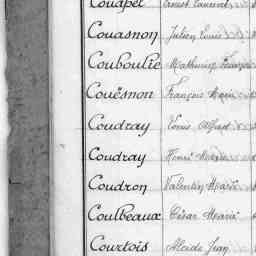 Couapel Ernest Laurent
Couasnon Julien Louis
Couboulie Mathurin François
Couësnon François Marie
Coudray Louis Albert
Coudray Henri Marie
Coudron Valentin Marie
Coulbeaux César Marie
Courtois Alcide Jean